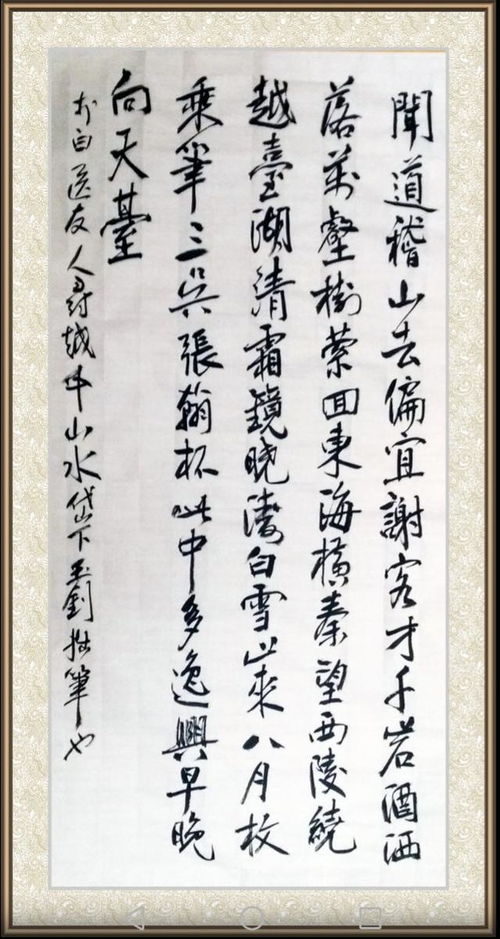 聞道稽山去偏宜謝客才千岩酒洒
落萬壑樹縈回東海横秦望西陵繞
越臺湖清霜鏡晓濤白雪山來八月枚
乘筆三吴張翰杯此中多逸興早晚
向天臺
李白送友人尋越中山水岱下王釗拙筆也